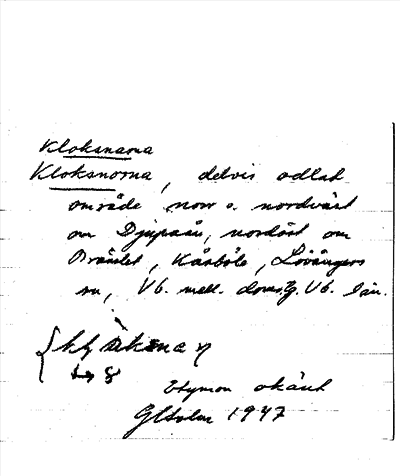 Kloksnama
Kloksnoma, delvis odlat
område norr o. nordväst
om Djupaån, nordöst om
Brännet, Kåsböle, Lövångers
sn, Vb. mell. doms. Vb. län.
Etymon okänt
GHolm 1947